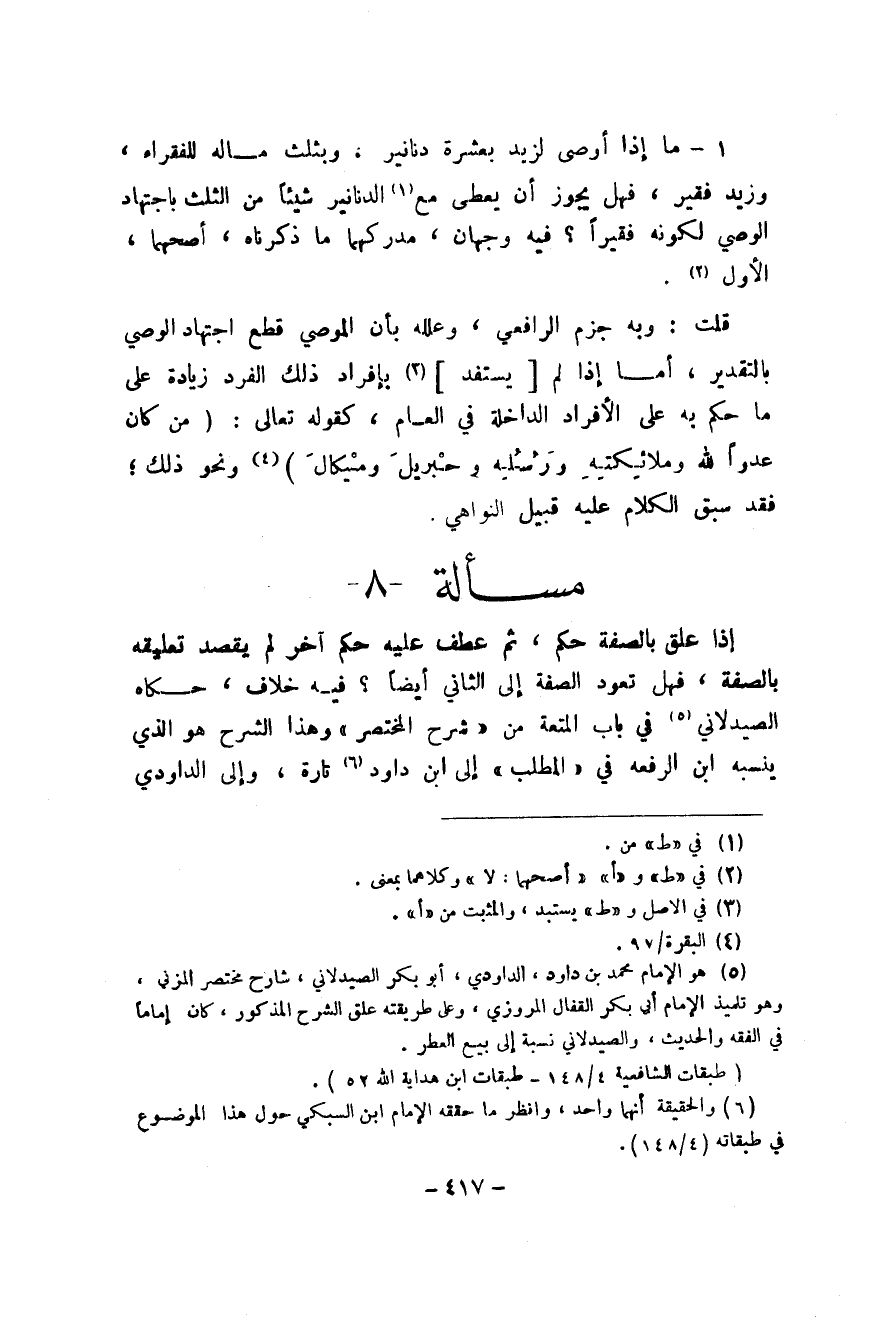 ١ - ما إذا أوصى لزيد بعشرة دنانير ، وبثلث مـــاله للفقراء ،
وزيد فقير ، فهل يجوز أن يعطى مع(١) الدنانير شيئاً من الثلث باجتهاد
الوصي لكونه فقيراً ؟ فيه وجهان ، مدركهما ما ذكرناه ، أصحهما ،
الأول (٢) .
قلت : وبه جزم الرافعي ، وعلله بأن الموصي قطع اجتهاد الوصي
بالتقدير ، أمـــا إذا لم [ يستفد ] (٣) بإفراد ذلك الفرد زيادة على
ما حكم به على الأفراد الداخلة في العـام ، كقوله تعالى : ( من كان
عدواً لله وملائِكتِهِ ورُسُلِهِ وجِبْرِيلَ ومِيْكالَ ) (٤) ونحو ذلك ؛
فقد سبق الكلام عليه قبيل النواهي .
مســـألة -٨-
إذا علق بالصفة حكم ، ثم عطف عليه حكم آخر لم يقصد تعليقه
بالصفة ، فهل تعود الصفة إلى الثاني أيضاً ؟ فيـه خلاف ، حـــكاه
الصيدلاني (٥) في باب المتعة من « شرح المختصر » وهذا الشرح هو الذي
ينسبه ابن الرفعه في « المطلب » إلى ابن داود (٦) تارة ، وإلى الداودي
(١) في «ط» من .
(٢) في «ط» و «أ» « أصحهما : لا » وكلاهما بمعنى .
(٣) في الاصل و «ط» يستبد ، والمثبت من «أ» .
(٤) البقرة/٩٧ .
(٥) هو الإمام محمد بن داود ، الداودي ، أبو بكر الصيدلاني ، شارح مختصر المزني ،
وهو تلميذ الإمام أبي بكر القفال المروزي ، وعلى طريقته علق الشرح المذكور ، كان إماماً
في الفقه والحديث ، والصيدلاني نسبة إلى بيع العطر .
( طبقات الشافعية ١٤٨/٤ - طبقات ابن هداية الله ٥٢ ) .
(٦) والحقيقة أنهما واحد ، وانظر ما حققه الإمام ابن السبكي حول هذا الموضوع
في طبقاته (١٤٨/٤) .
- ٤١٧ -